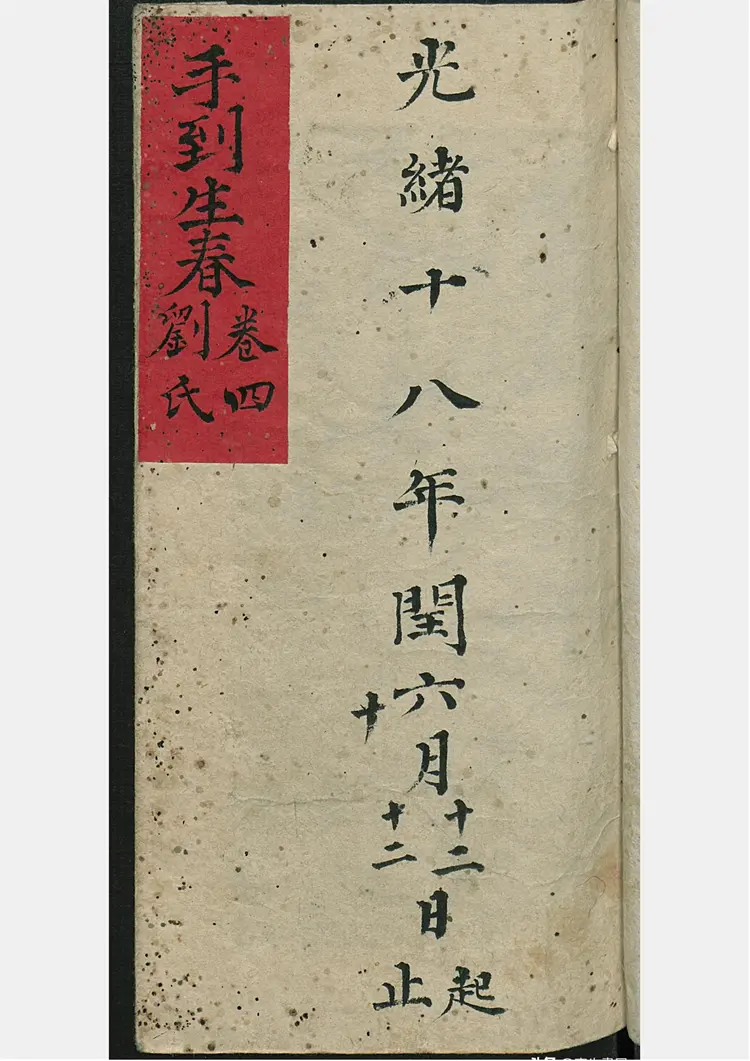 光緒十八年閏六月十二日起
十 十二 止
手到生春
卷四
劉氏